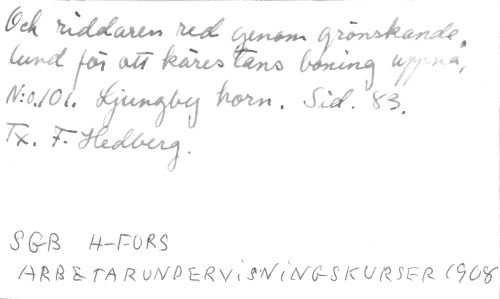 Och riddaren red genom grönskande
lund för att kärestans boning uppnå,
N:o 101. Ljungby horn. Sid. 83.
Tx. F. Hedberg.
SGB H-FORS
ARBETARUNDERVISNINGSKURSER 1908